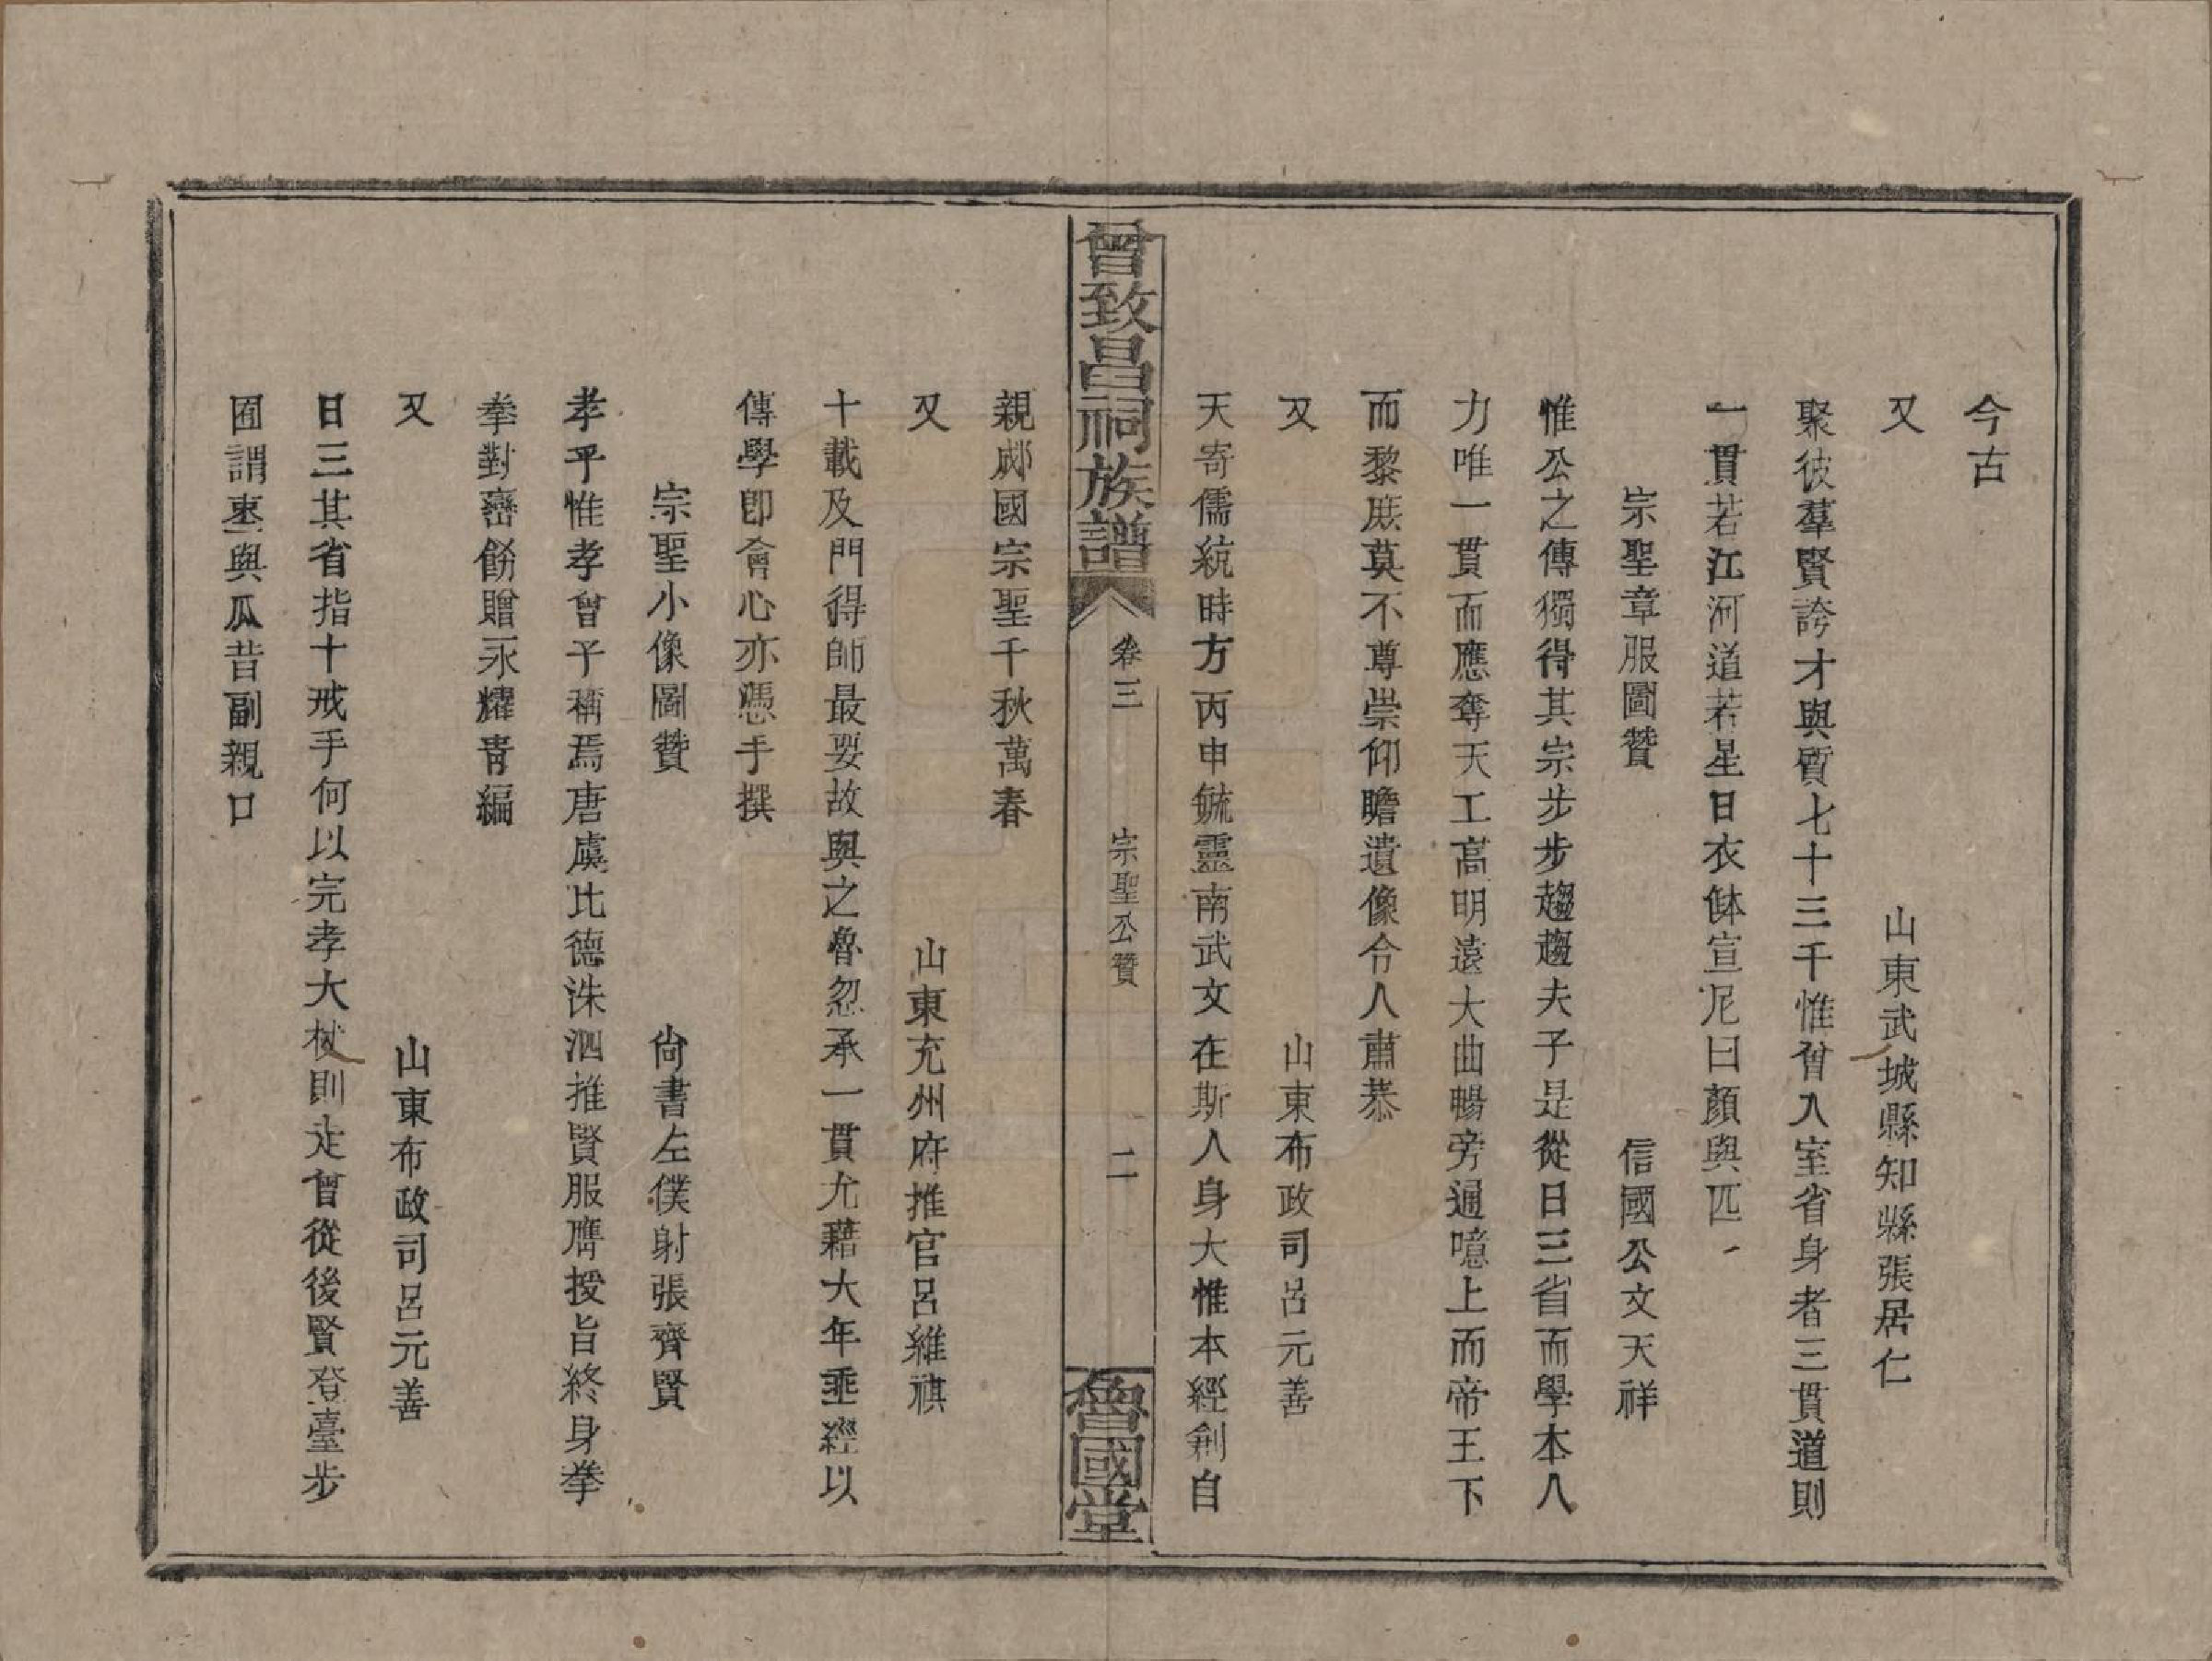 今古
又　山東武城縣知縣張居仁
聚彼羣賢誇才與質七十三千惟曾入室省身者三貫道則
一貫若江河道若星日衣鉢宣尼曰顏與匹
宗聖章服圖贊　信國公文天祥
惟公之傳獨得其宗步步趨趨夫子是從日三省而學本八
力唯一貫而應奪天工高明遠大曲暢旁通噫上而帝王下
而黎庶莫不尊崇仰瞻遺像令人肅恭
又　山東布政司呂元善
天寄儒統時方丙申毓靈南武文在斯人身大惟本經創自
曾致昌祠族譜　卷三　宗聖公贊　二　魯國堂
親郕國宗聖千秋萬春
又　山東兖州府推官呂維祺
十載及門得師最要故與之魯忽承一貫尤藉大年垂經以
傳學卽會心亦憑手撰
宗聖小像圖贊　尙書左僕射張齊賢
孝乎惟孝曾子稱焉唐虞比德洙泗推賢服膺授旨終身拳
拳對巒餝贈永耀靑編
又　山東布政司呂元善
日三其省指十戒手何以完孝大杖則走曾從後賢登臺步
囿謂棗與瓜昔副親口